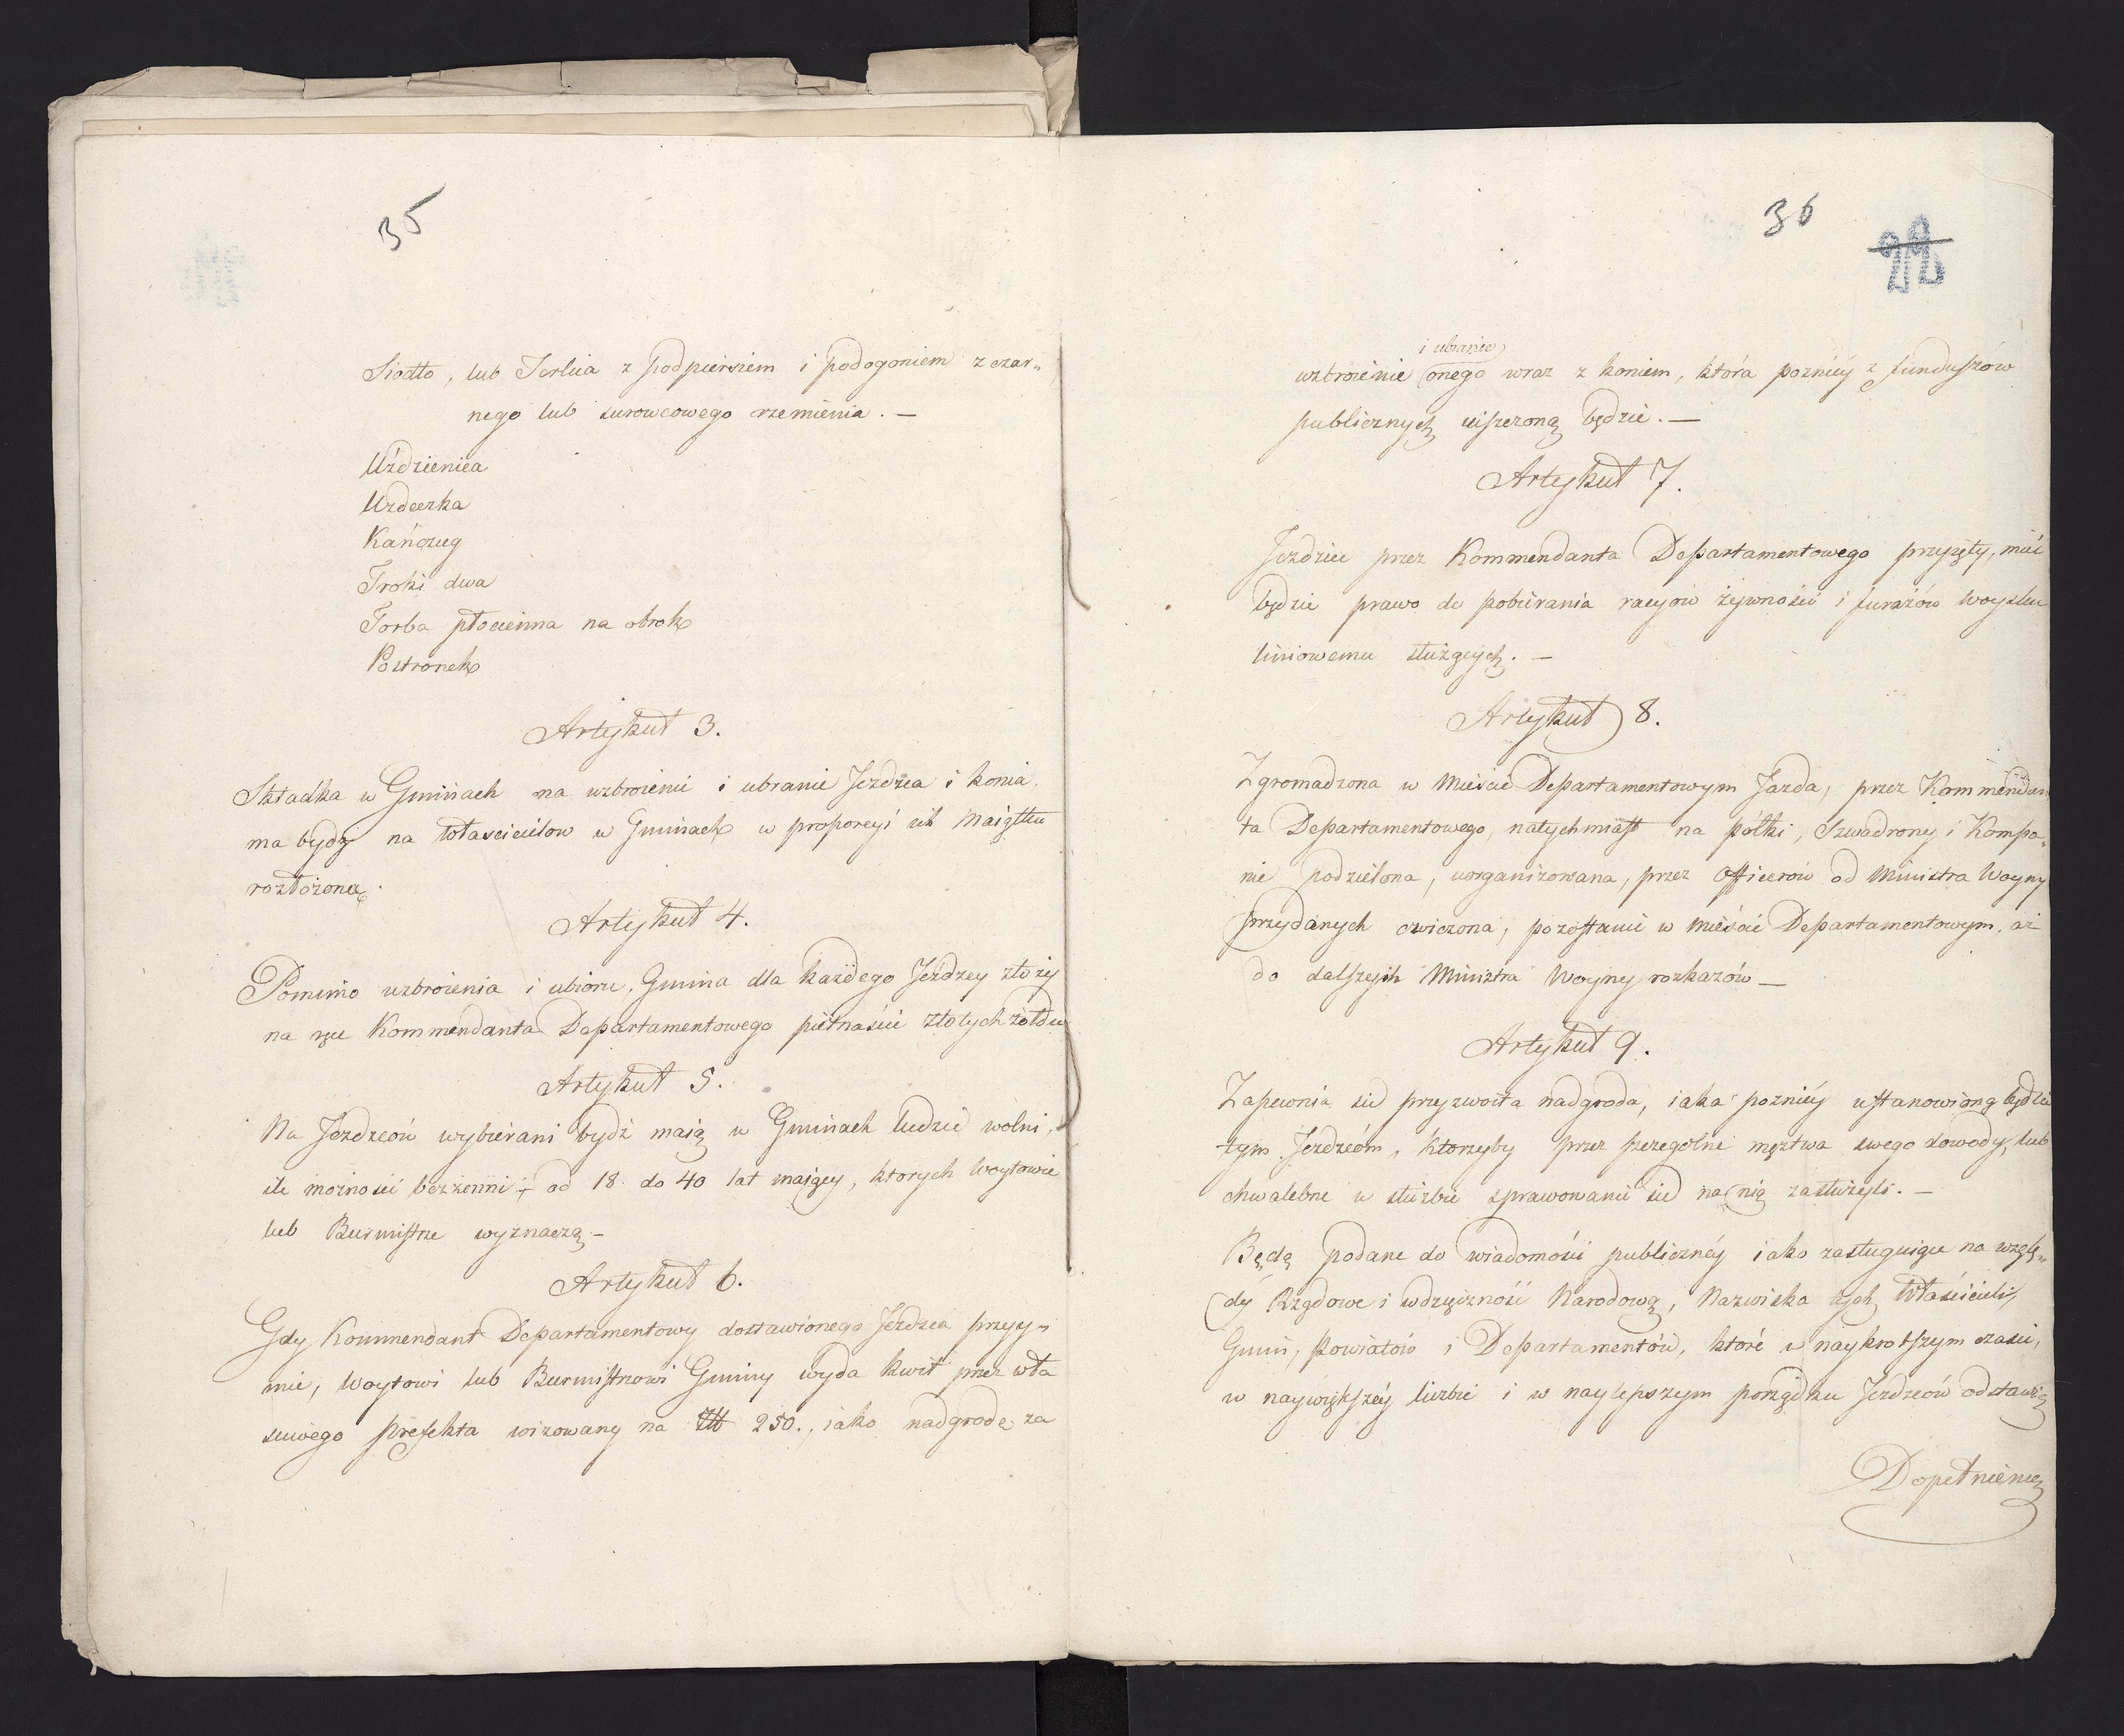 35
Siodło, lub Terlica z podpiersiem i podogoniem z czar„
nego lub surowcowego rzemienia. —
Uździenica
Uzdeczka
Kańczug
Troki dwa
Torba płocienna na obrok
Postronek
Artykuł 3.
Składka w Gminach na uzbroienie i ubranie Jezdzca i konia,
ma bydź na włascicielow w Gminach w proporcyi ich Maiątku
rozłożoną.
Artykuł 4.
Pomimo uzbroienia i ubioru, Gmina dla każdego Jeźdzcy złoży
na ręce Kommendanta Departamentowego piętnaście złotych żołdu
Artykuł 5.
Na Jezdzców wybierani bydź maią w Gminach ludzie wolni,
ile możności bezżenni, od 18. do 40 lat maiący, ktorych Woytowie
lub Burmistrze wyznaczą. —
Artykuł 6.
Gdy Kommendant Departamentowy dostawionego Jezdzca przyy„
mie, Woytowi lub Burmistrzowi Gminy wyda kwit przez wła
sciwego Prefekta wizowany na Zł 250., iako nadgrodę za
36
22
i ubranie
uzbroienie onego wraz z koniem, która poźniey z funduszów
publicznych uiszczoną będzie. —
Artykuł 7.
Jezdziec przez Kommendanta Departamentowego przyięty, mieć
będzie prawo do pobierania racyów żywności i furażów Woysku
liniowemu służących. —
Artykuł 8.
Zgromadzona w Mieście Departamentowym Jazda, przez Kommendan
ta Departamentowego, natychmiast na pólki, Szwadrony i Kompa„
nie podzielona, uorganizowana, przez Officerów od Ministra Woyny
przydanych cwiczona, pozostanie w mieście Departamentowym, aż
do dalszych Ministra Woyny rozkazów —
Artykuł 9.
Zapewnia się przyzwoita nadgroda, iaka poźniey ustanowioną będzie
tym Jezdzcóm, ktorzyby przez szczegolne męztwa swego dowody, lub
chwalebne w służbie sprawowanie się na nią zasłużyli. —
Będą podane do wiadomości publiczney iako zasługuiące na wzglę„
dy Rządowe i wdzięczność Narodową, Nazwiska tych Właścicieli,
Gmin, Powiatów i Departamentów, które w naykrotszym czasie,
w naywiększey liczbie i w naylepszym porządku Jezdzców odstawią
Dopełnienie